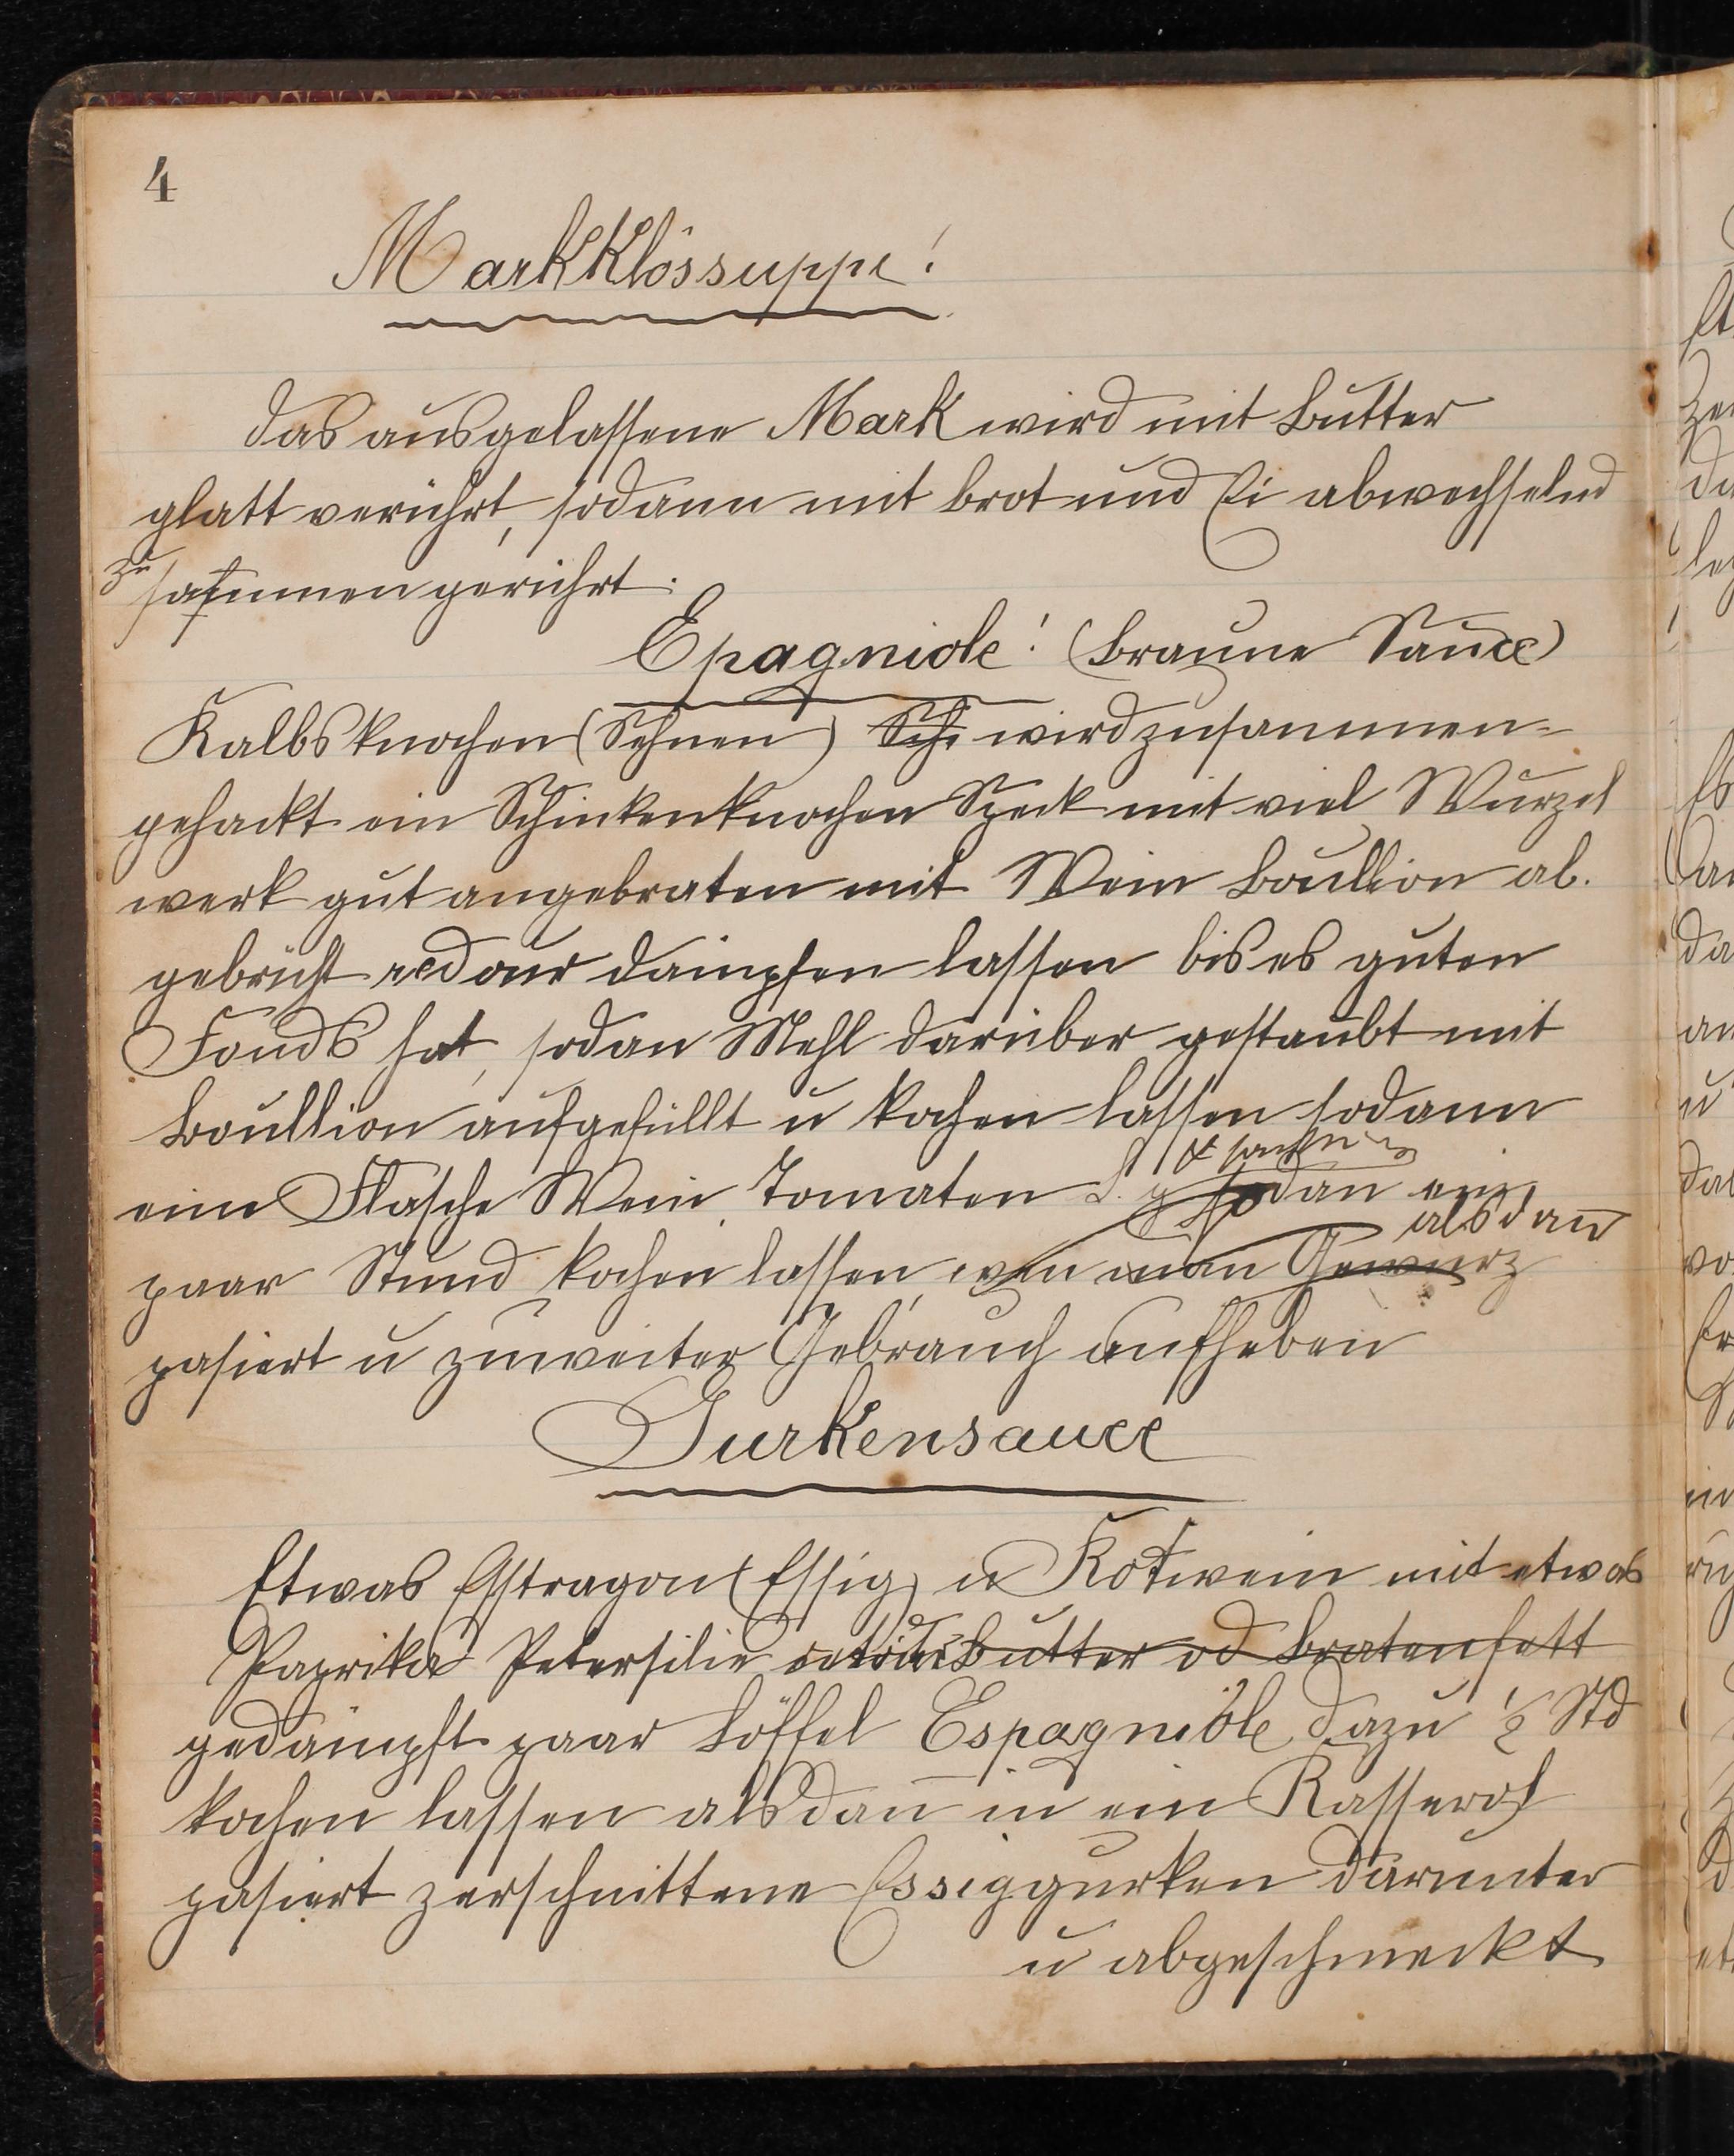 4
MarkKlössuppe!
Das ausgelassene Mark wird mit Butter
glatt verrührt, sodann mit Brot und Ei abwechselnd
zusammengerührt.
Epagniole! (Braune Sauce)
Kalbsknochen (Sehnen) Sch wird zusammen-
gehackt ein Schinkenknochen Speck mit viel Wurzel
werk gut angebraten mit Wein Boullion ab.
gebricht dämpfen lassen bis es guten
Fonds hat, sodan Mehl darüber gestaubt mit
Boullion aufgefüllt u kochen lassen sodann
eine Flasche Wein, Tomaten sodan ein
alsdan̄
paar Stund kochen lassen, wen man Gewürz
pasiert u zuweiter Gebrauch aufheben
Gurkensauce
Etwas Estragon (Essig) u Rotwein mit etwas
Paprika Petersilie Butter od Bratenfett
gedämpft paar Löffel Espagniöle dazu ½ Std
kochen lassen alsdan̄ in ein Kasserol
pasiert zerschnittene Essiggurken darunter
u abgeschmeckt